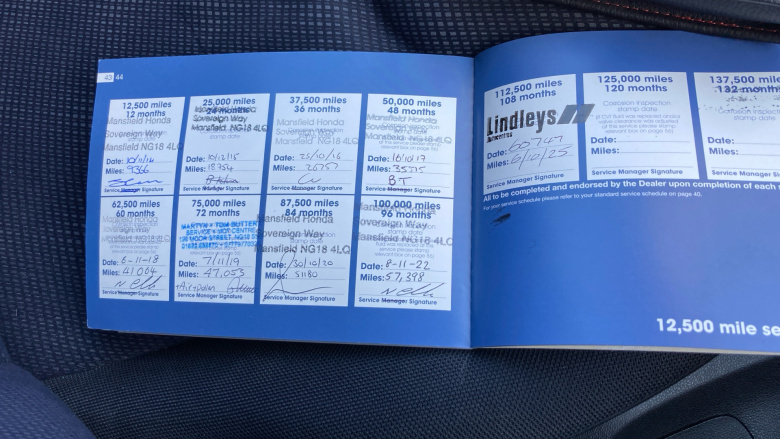 43 44
12,500 miles
12 months
Mansfield Honda
Sovereign Way
Mansfield NG18 4LQ
Date: 10/11/14
Miles: 9366
Service Manager Signature
25,000 miles
24 months
Mansfield Honda
Sovereign Way
Mansfield NG18 4LQ
Date: 10/12/15
Miles: 18754
Service Manager Signature
37,500 miles
36 months
Mansfield Honda
Sovereign Way
Mansfield NG18 4LQ
Date: 25/10/16
Miles: 26757
Service Manager Signature
50,000 miles
48 months
Mansfield Honda
Sovereign Way
Mansfield NG18 4LQ
Date: 16/10/17
Miles: 35315
BT
Service Manager Signature
62,500 miles
60 months
Mansfield Honda
Sovereign Way
Mansfield NG18 4LQ
Date: 6-11-18
Miles: 41,064
Service Manager Signature
75,000 miles
72 months
SERVICE & MOT CENTRE
Date: 7/11/19
Miles: 47,053
+Air+pollen
Service Manager Signature
87,500 miles
84 months
Mansfield Honda
Sovereign Way
Mansfield NG18 4LQ
Date: 30/10/20
Miles: 51180
Service Manager Signature
100,000 miles
96 months
Mansfield Honda
Sovereign Way
Mansfield NG18 4LQ
Date: 8-11-22
Miles: 57,398
Service Manager Signature
112,500 miles
108 months
Lindleys
Date: 60747
Miles: 6/10/25
Service Manager Signature
125,000 miles
120 months
Corrosion inspection
stamp date
Date:
Miles:
Service Manager Signature
137,500 mil
132 month
Date:
Miles:
Service Manager
All to be completed and endorsed by the Dealer upon completion of each s
For your service schedule please refer to your standard service schedule on page 40.
12,500 mile se